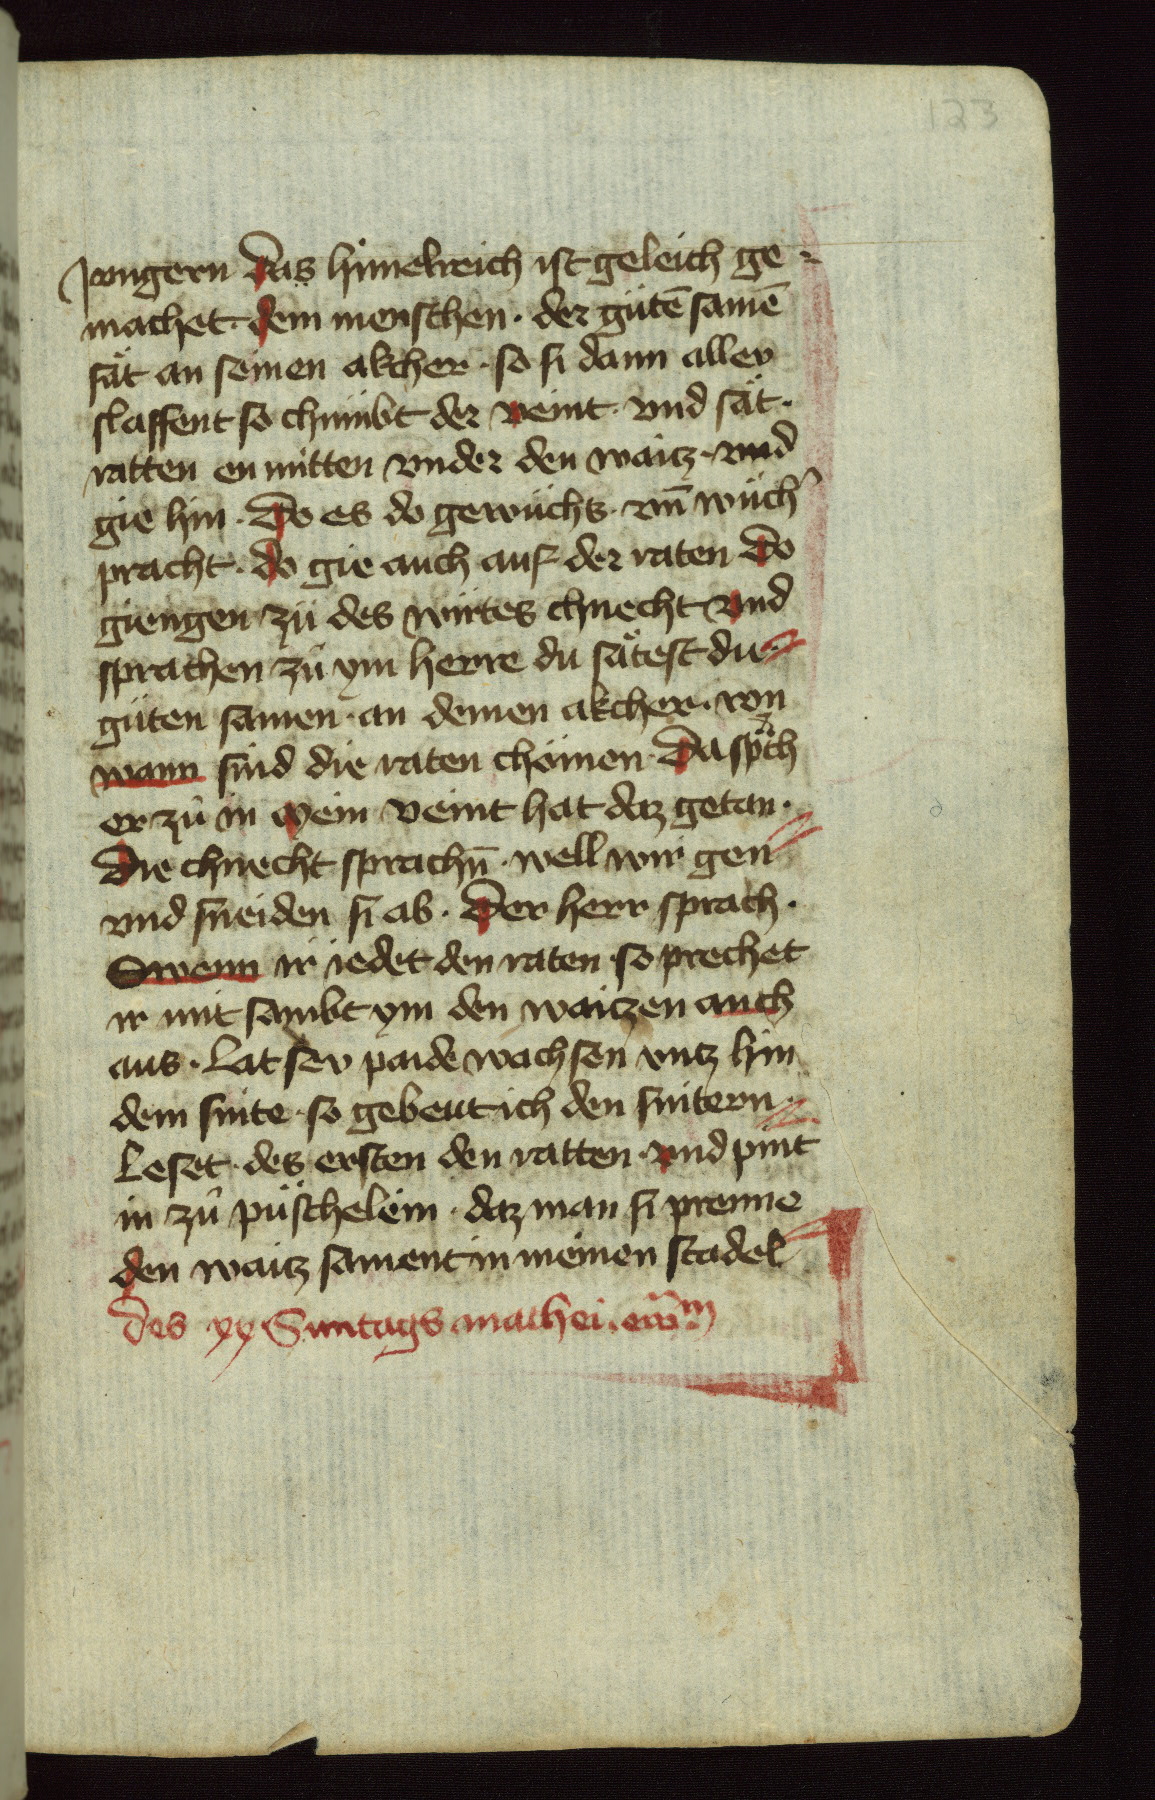 123
Jvngern Das himelreich ist geleich ge-
machet. dem menschen. der gůtē samē
sät an seinen akcher. so si dann aller
slaffent so chümbt der veint. vnd sät.
ratten en mitten vnder den waitz. vnd
gie hin. Do es do gewůchs. vn̄ wůcher
pracht. do gie auch auf der raten Do
giengen zů des wirtes chnecht vnd
sprachen zů ym herre du sätest du
gůten samen. an deinen akcher. von
wann sind die raten chömen Da spach
er zů in Mein veint hat daz getan.
Die chnecht sprachn̄. well wir gen
vnd sneiden si ab. Der herr sprach.
Swenn ir iedet den raten so prechet
ir mit sambt ym den waitzen auch
aus. Lat sev paide wachsen vntz hin
dem snite. so gebeut ich den snitern.
Leset. des ersten den ratten. vnd pint
in zů püschelein. daz man si prenne
den waitz sament in meinen stadel
Des xx Suntags mathei. ew̄m